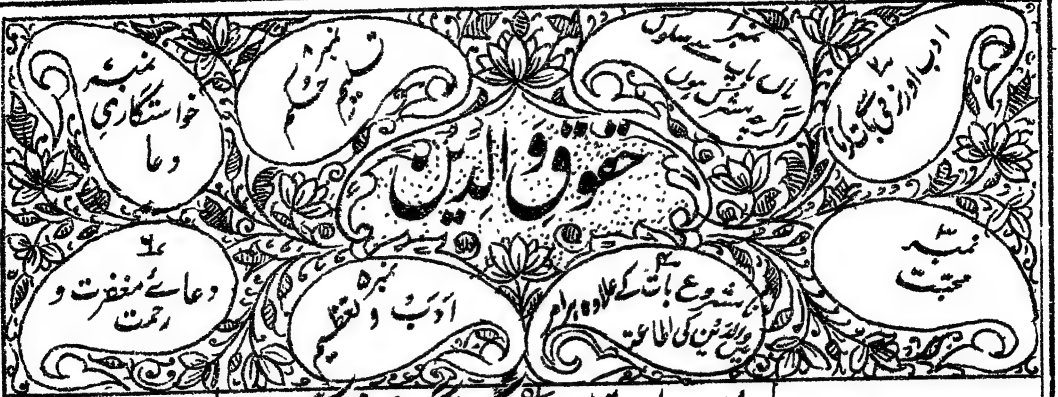 حقوق والدین
نمبر۱
ماں باپ سے سلوک
اگرچہ مشرک ہوں
نمبر۲
ادب اور نرمی
نمبر۳
محبت
نمبر۴
شروع بات کے علاوہ ہر امر
والدین کی اطاعت
نمبر۵
ادب و تعظیم
نمبر۶
دعائے مغفرت و
رحمت
نمبر
خواستگاری
دعا
نمبر۸